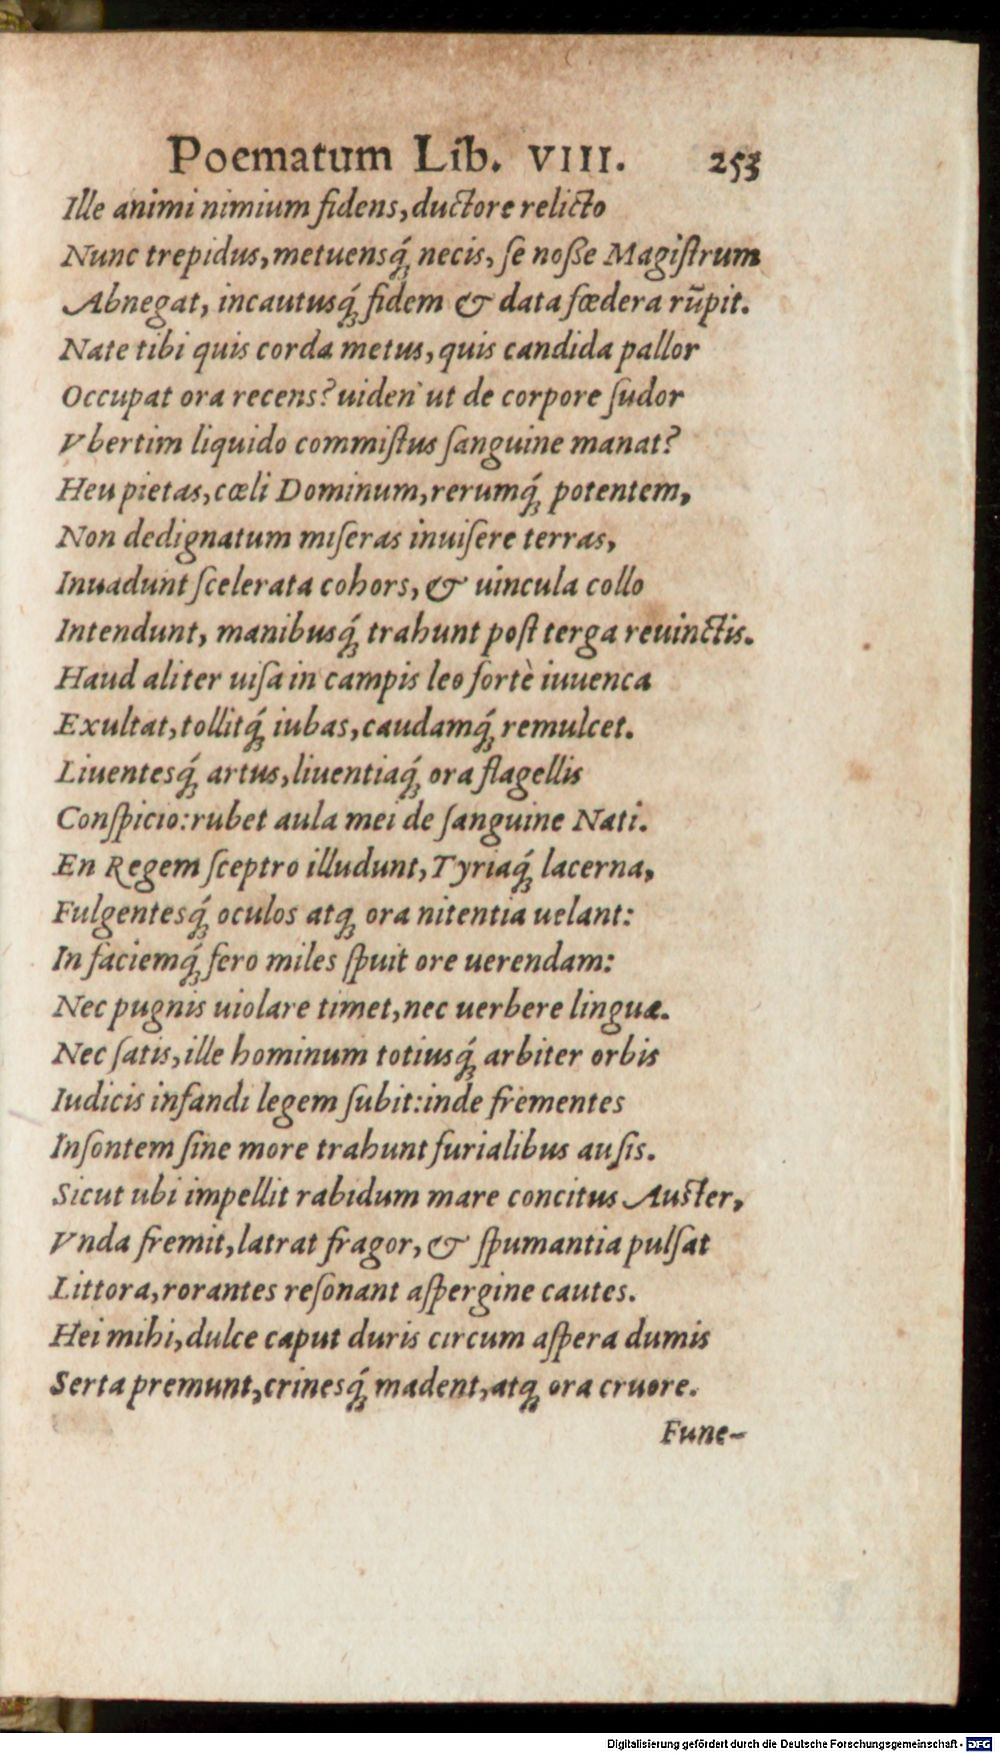 Poematum Lib. VIII. 253
Ille animi nimium fidens, ductore relicto
Nunc trepidus, metuensq́; necis, ſe noſſe Magiſtrum
Abnegat, incautusq́; fidem & data fœdera rũpit.
Nate tibi quis corda metus, quis candida pallor
Occupat ora recens? uiden' ut de corpore ſudor
Vbertim liquido commiſtus ſanguine manat?
Heu pietas, cœli Dominum, rerumq́; potentem,
Non dedignatum miſeras inuiſere terras,
Inuadunt ſcelerata cohors, & uincula collo
Intendunt, manibusq́; trahunt poſt terga reuinctis.
Haud aliter uiſa in campis leo fortè iuuenca
Exultat, tollitq́; iubas, caudamq́; remulcet.
Liuentesq́; artus, liuentiaq́; ora flagellis
Conſpicio: rubet aula mei de ſanguine Nati.
En Regem ſceptro illudunt, Tyriaq́; lacerna,
Fulgentesq́; oculos atq; ora nitentia uelant:
In faciemq́; fero miles ſpuit ore uerendam:
Nec pugnis uiolare timet, nec uerbere linguæ.
Nec ſatis, ille hominum totiusq́; arbiter orbis
Iudicis infandi legem ſubit: inde frementes
Inſontem ſine more trahunt furialibus auſis.
Sicut ubi impellit rabidum mare concitus Auſter,
Vnda fremit, latrat fragor, & ſpumantia pulſat
Littora, rorantes reſonant aſpergine cautes.
Hei mihi, dulce caput duris circum aſpera dumis
Serta premunt, crinesq́; madent, atq; ora cruore.
Fune-
Digitalisierung gefördert durch die Deutsche Forschungsgemeinschaft - DFG